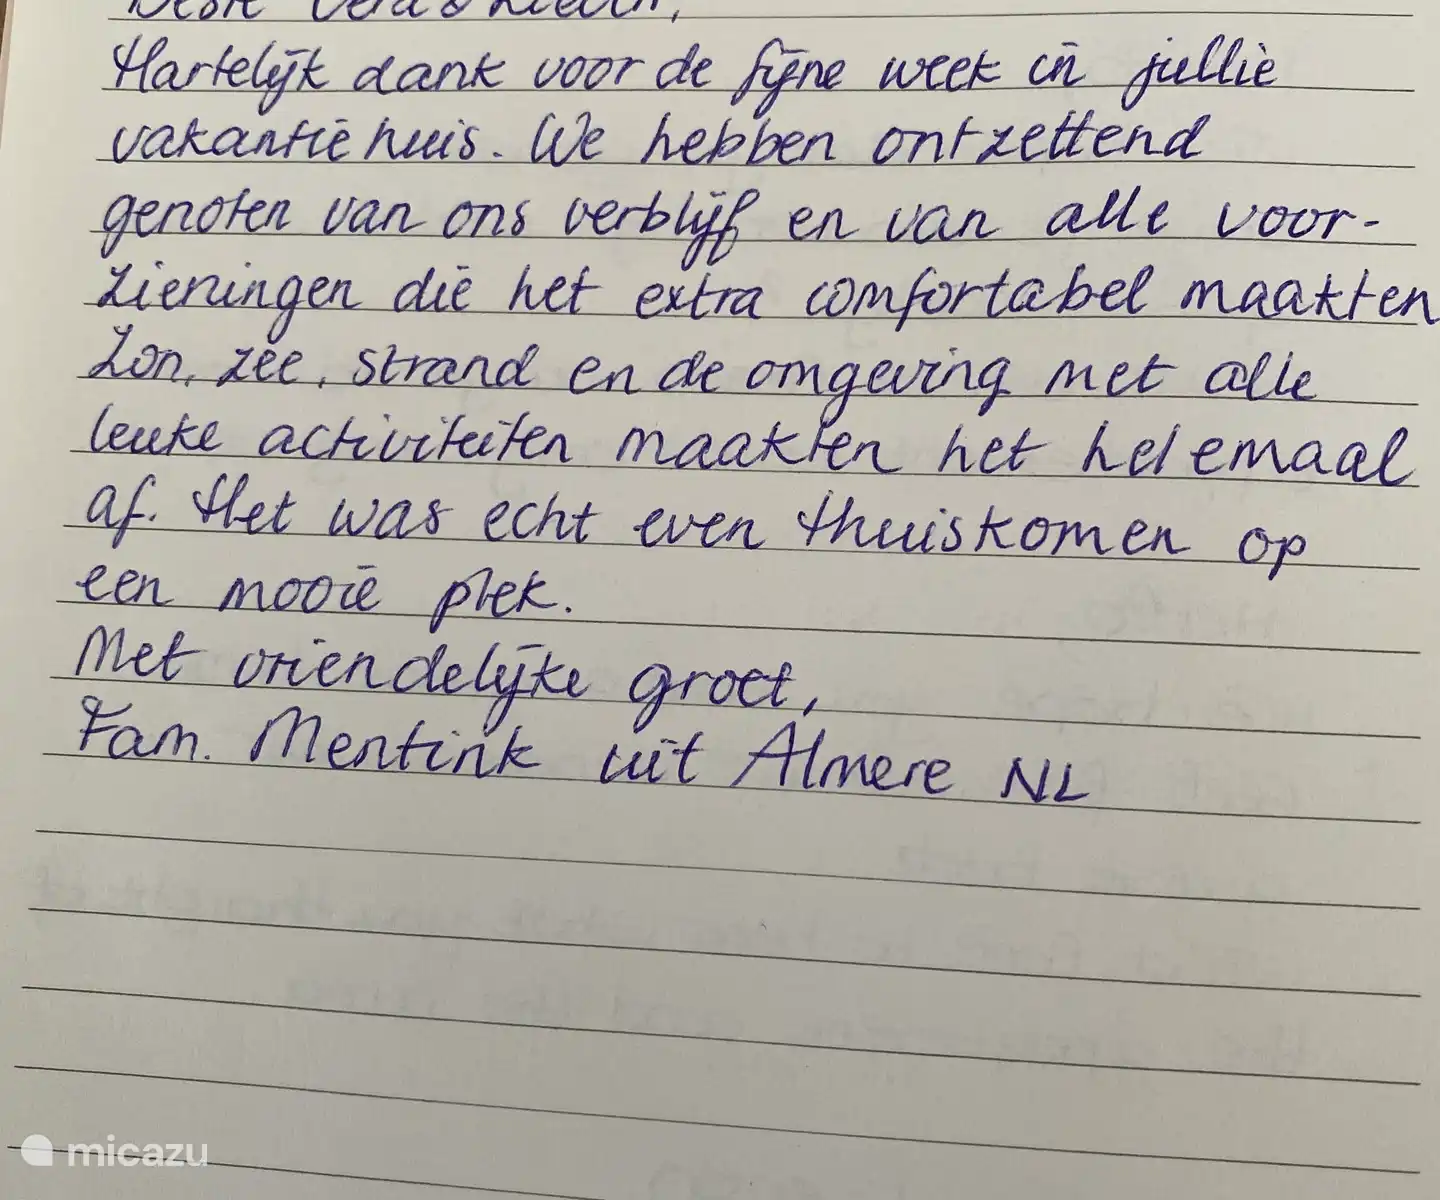 Beste
Hartelijk dank voor de fijne week in jullie
vakantie huis. We hebben ontzettend
genoten van ons verblijf en van alle voor-
zieningen die het extra comfortabel maakten
Zon, zee, strand en de omgeving met alle
leuke activiteiten maakten het helemaal
af. Het was echt even thuiskomen op
een mooie plek.
Met vriendelijke groet,
Fam. Mentink uit Almere NL
micazu